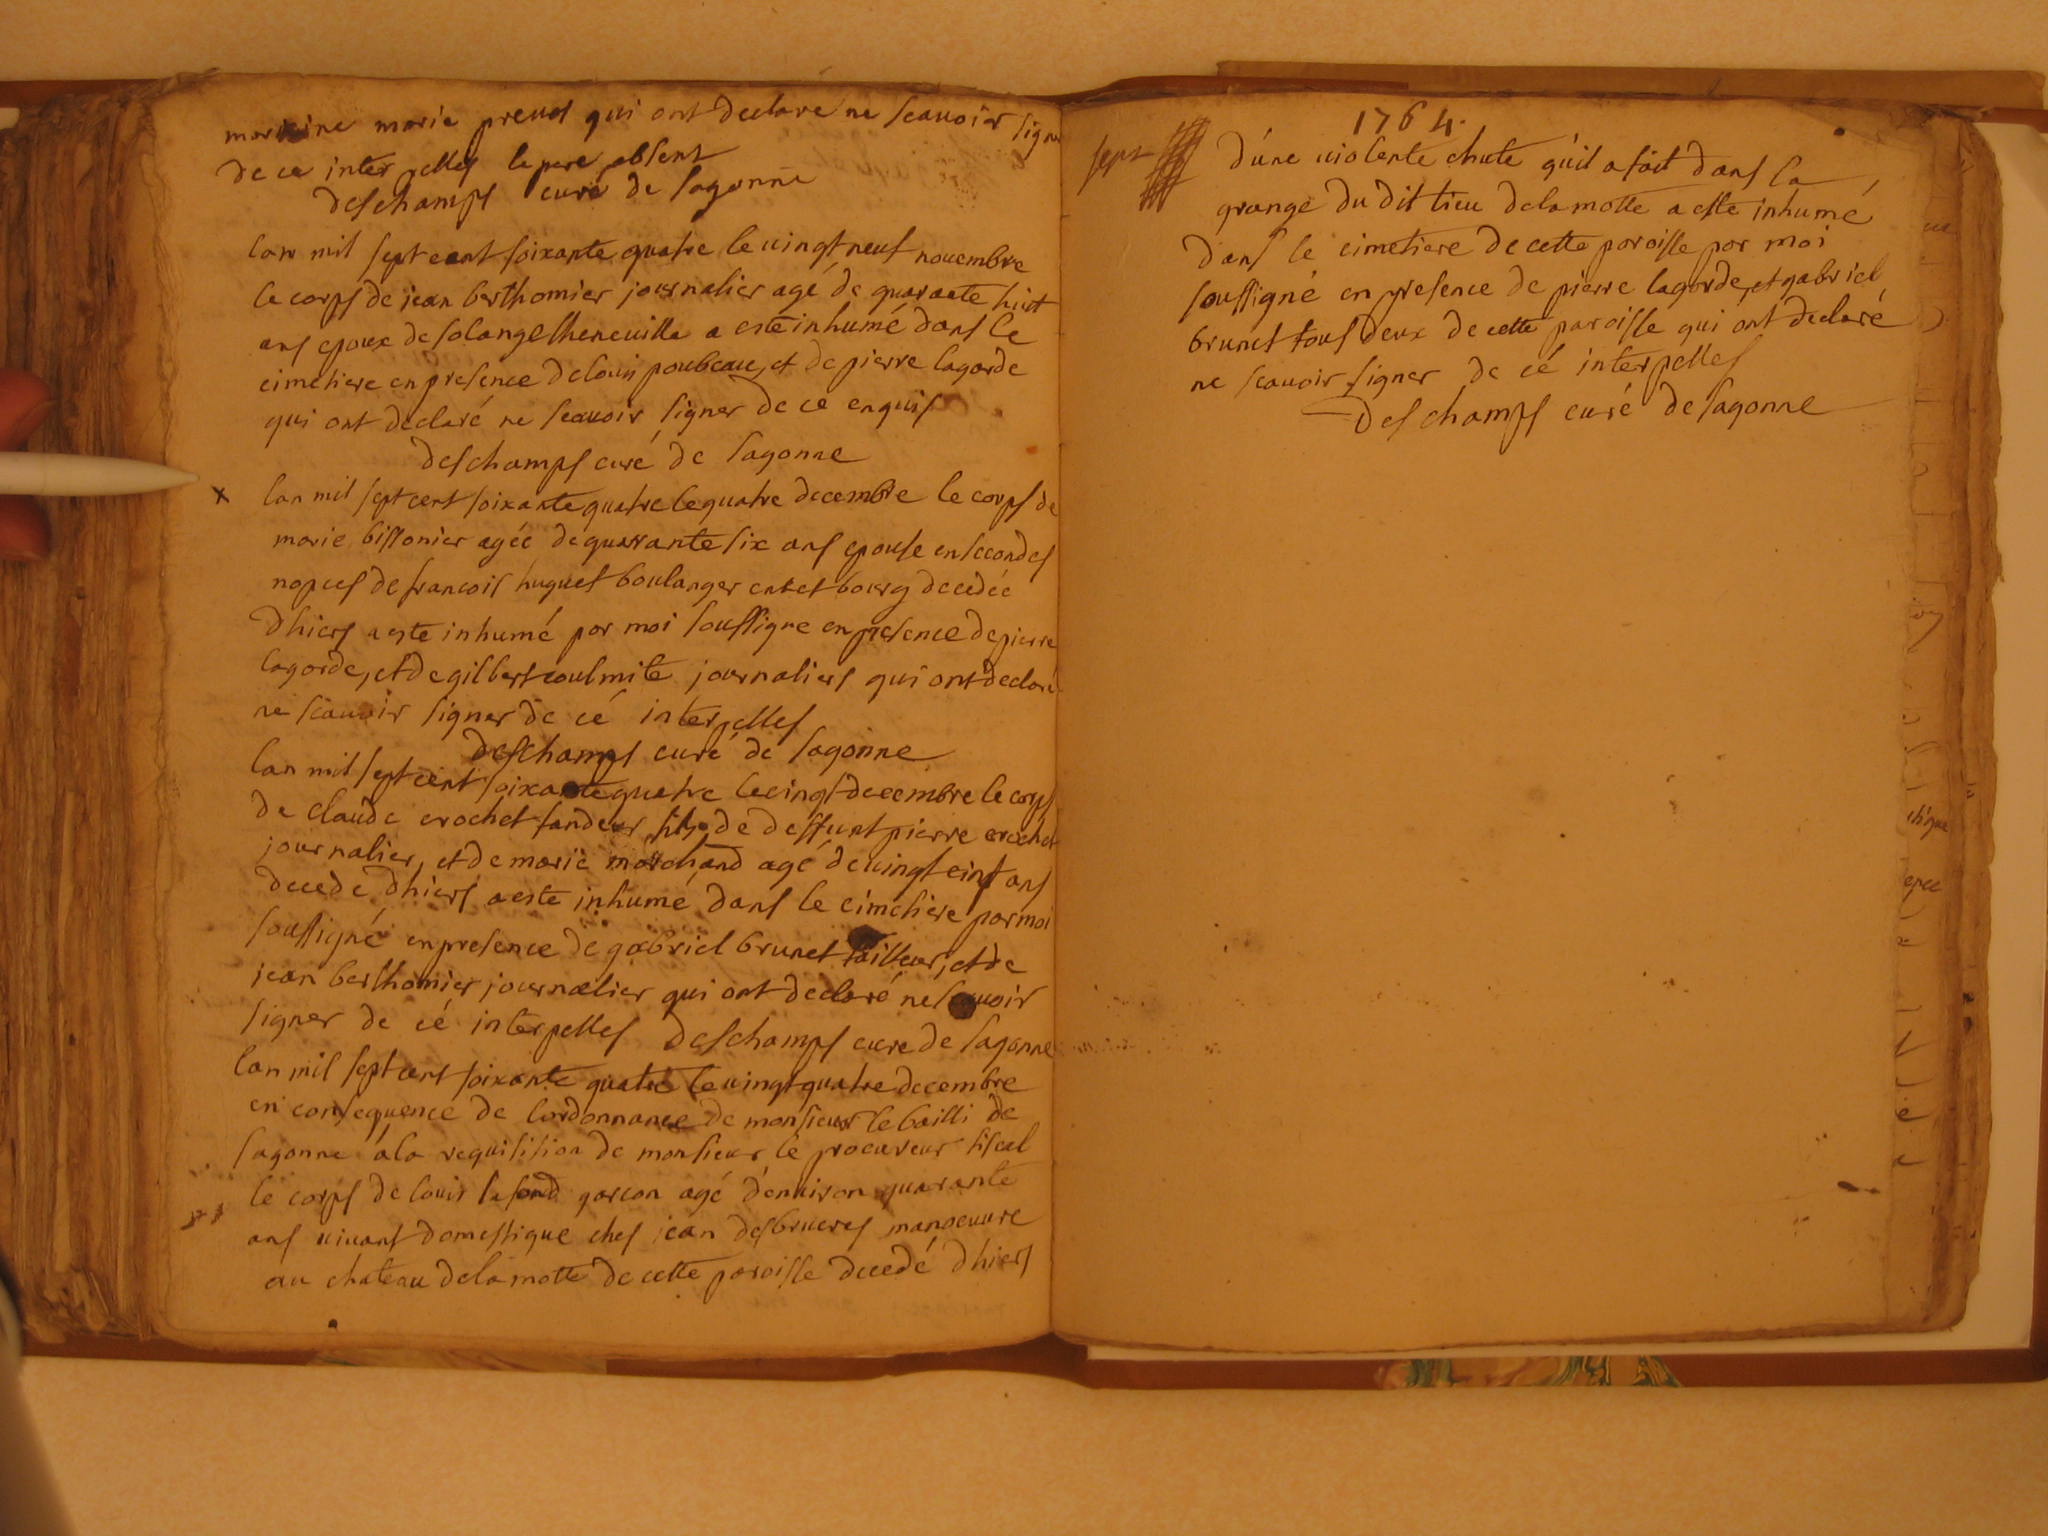 marraine marie preuot qui ont declaré ne scauoir signer
de ce interpelles le pere absent
deschamps curé de sagonne
lan mil sept cent soixante quatre le uingt neuf nouembre
le corps de jean berthomier journalier agé de quarante huit
ans epoux de solange theneuille a esté inhumé dans le
cimetiere en presence de louis poubeau, et de pierre lagorde
qui ont declaré ne scauoir signer de ce enquis
deschamps curé de sagonne
x lan mil sept cent soixante quatre le quatre decembre le corps de
marie bissonier agée de quarrante six ans epouse en secondes
nopces de francois huguet boulanger en cet bourg decedée
dhiers a este inhumé par moi soussigne en presence de pierre
lagorde, et de gilbert coulmite journaliers qui ont declaré
ne scauoir signer de cé interpelles
deschamps curé de sagonne
lan mil sept cent soixante quatre le uingt decembre le corps
de claude crochet fils de deffunt pierre crochet
journalier, et de marie marchand agé de uingt cinq ans
decedé dhiers a este inhumé dans le cimetiere par moi
soussigné en presence de gabriel brunet tailleur, et de
jean berthomier journalier qui ont declaré ne scauoir
signer de cé interpelles deschamps curé de sagonne
lan mil sept cent soixante quatre le uingt quatre decembre
en consequence de lordonnance de monsieur le bailli de
sagonne á la requisition de monsieur le procureur fiscal
le corps de louis lafond garcon agé d'enuiron quarante
ans uiuant domestique ches jean desbrueres manoeuure
au chateau de la motte de cette paroisse decedé dhiers
1764.
sept
d'une uiolente chute qu'il a fait dans la
grange du dit lieu de la motte a este inhumé
dans le cimetiere de cette paroisse par moi
soussigné en presence de pierre lagorde, et gabriel
brunet tous deux de cette paroisse qui ont declaré
ne scauoir signer de cé interpelles
deschamps curé de sagonne